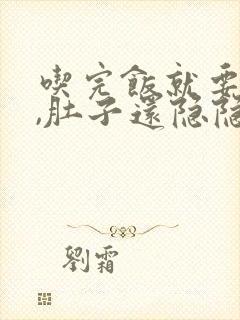 喫完飯就要
,肚子還隐隐
劉霜